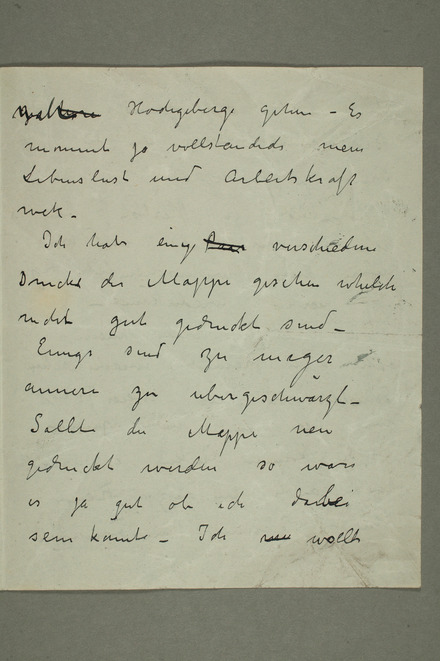 Hochgeberge gehen – Es
mommt ja vollstendids mein
Lebenslust und Arbeitskraft
wek –
Ich habe einige verschiedene
Drucke der Mappe gesehen whelch
nicht gut gedruckt sind –
Einige sind zu mager
annere zu ubergeschwärzt –
Sollte die Mappe neu
gedruckt werden so wäre
es ja gut ob ich dabei
sein könnte – Ich wollte